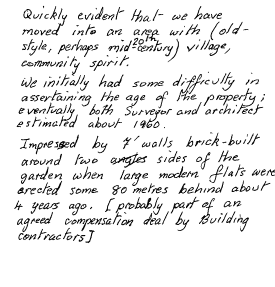 Quickly evident that we have
moved into an area with (old-
style, perhaps mid 20th century) village,
community spirit.
We initially had some difficulty in
assertaining the age of the property;
eventually both Surveyor and architect
estimated about 1960.
Impressed by 7' walls brick-built
around two angles sides of the
garden when large modern flats were
erected some 80 metres behind about
4 years ago. [probably part of an
agreed compensation deal by Building
contractors]